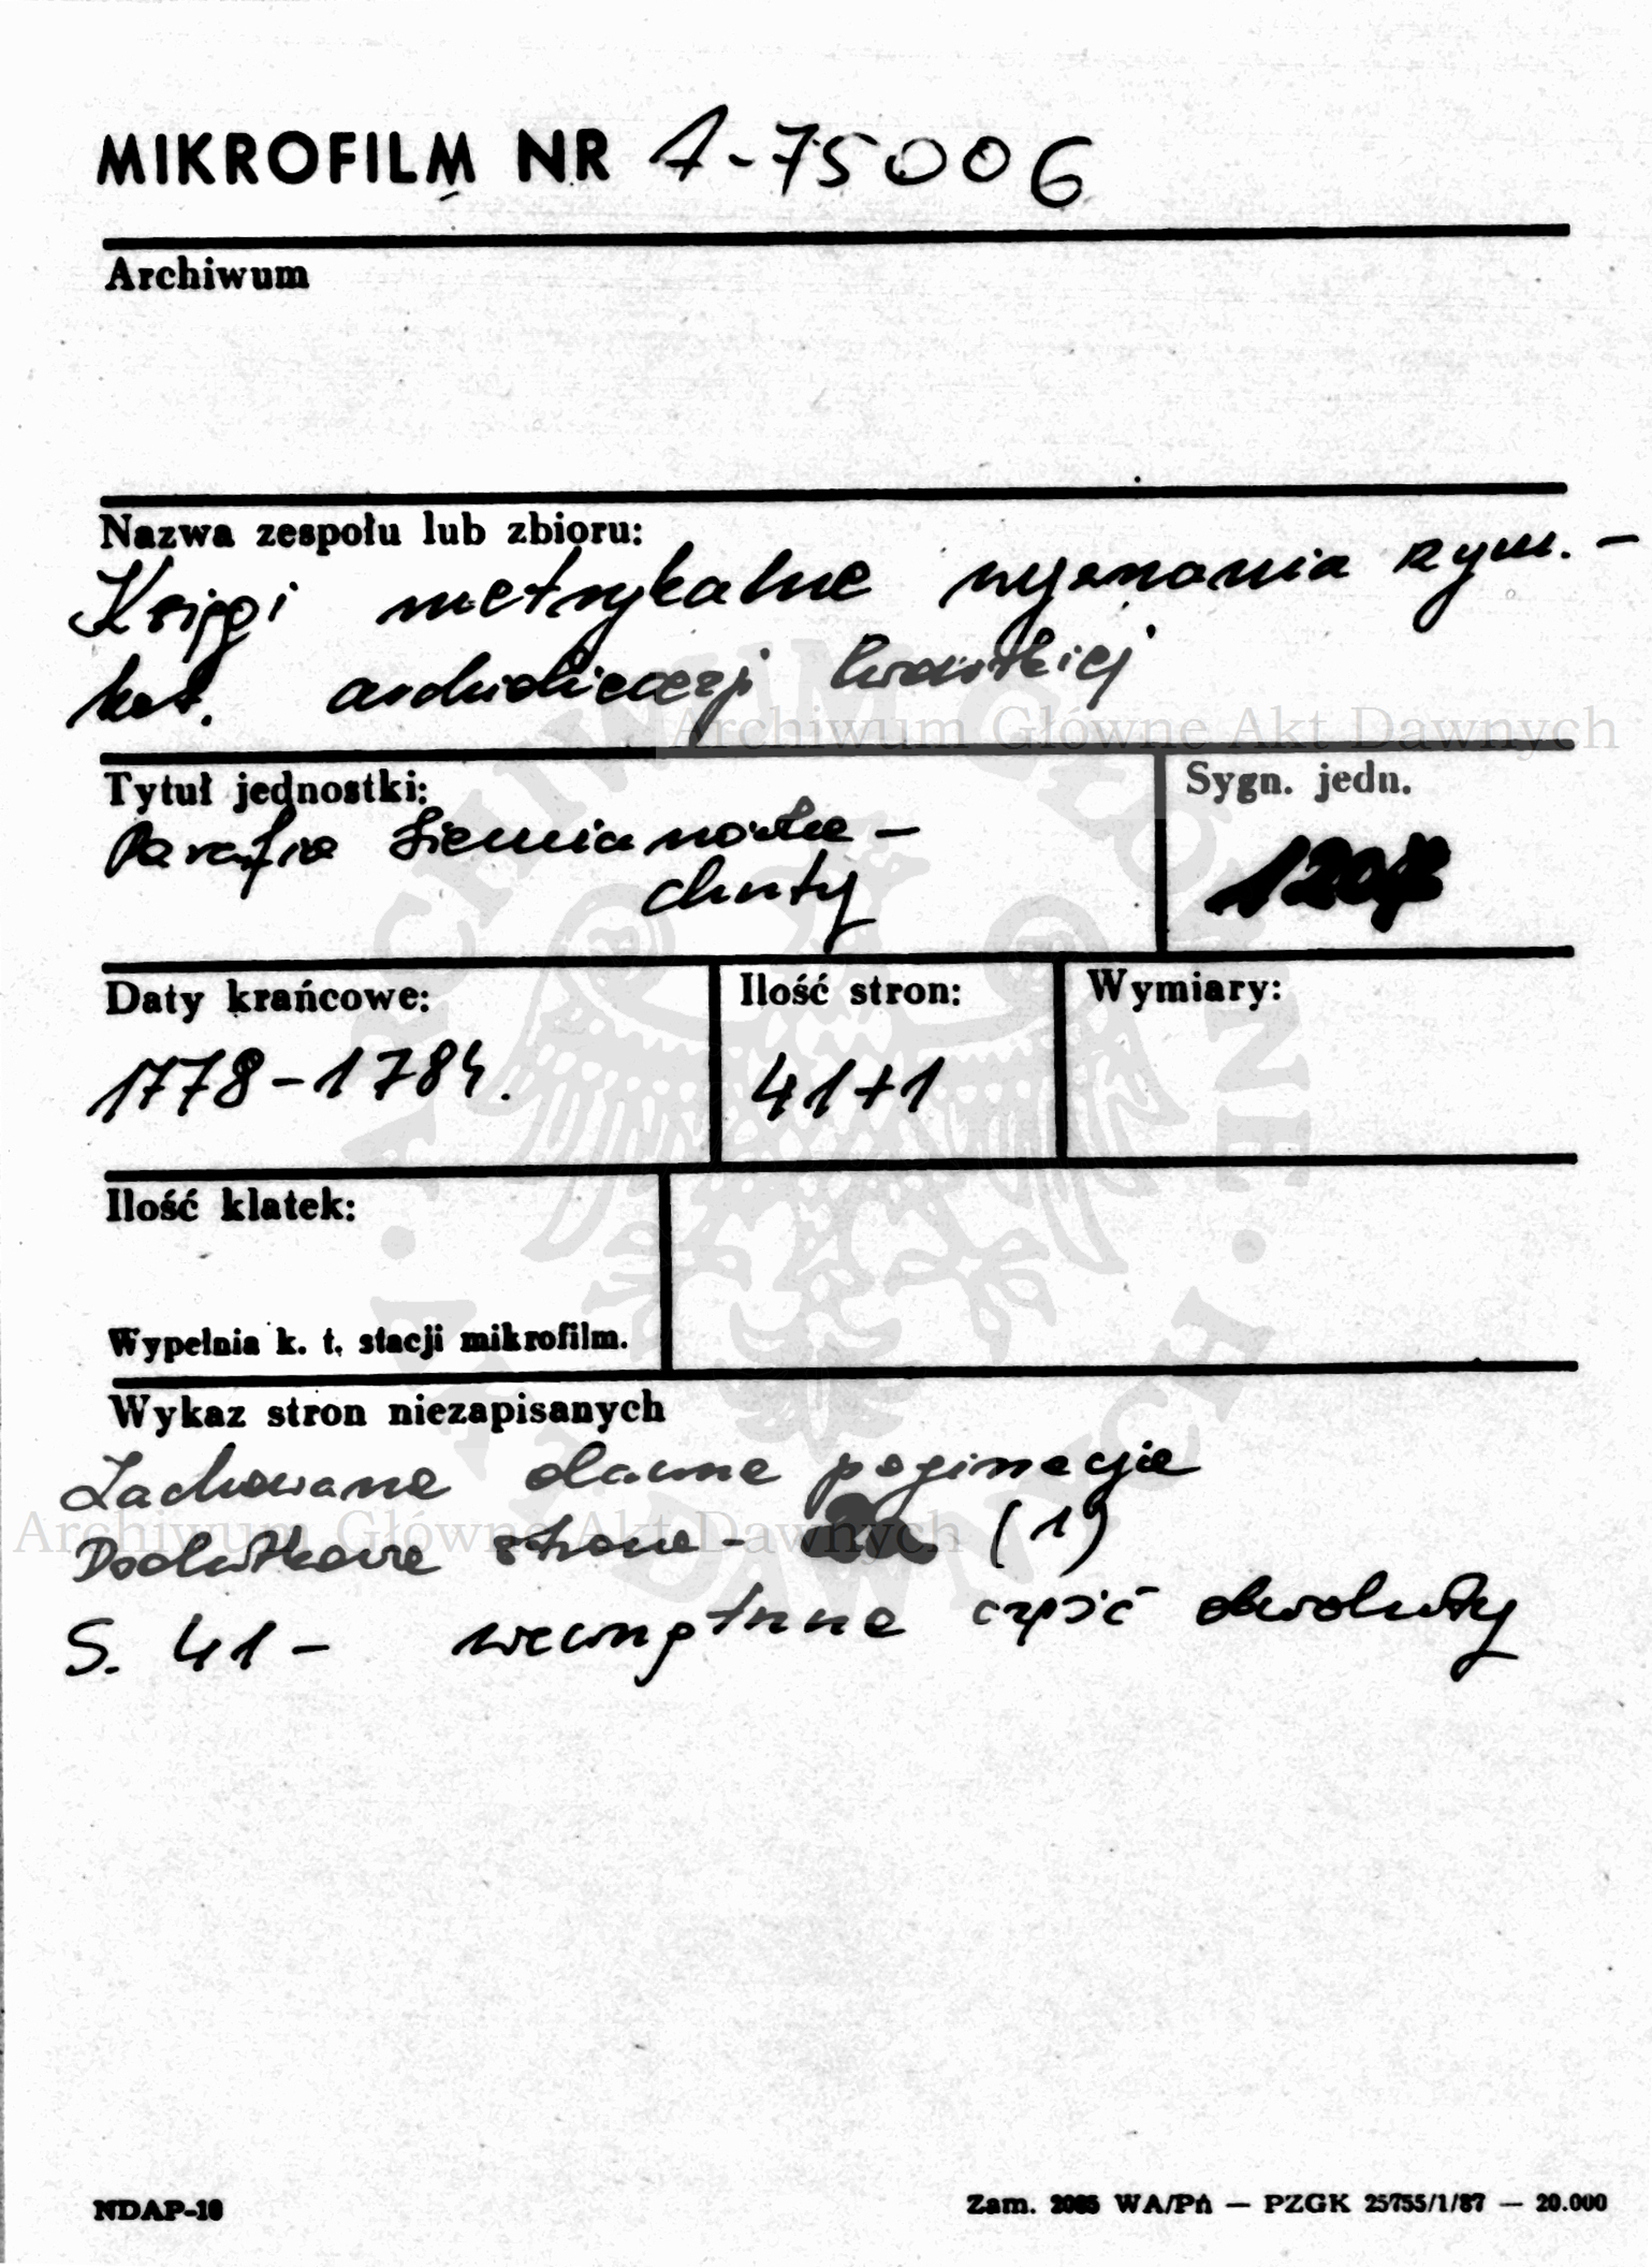 MIKROFILM NR A-75006
Archiwum
Nazwa zespołu lub zbioru:
Księgi metrykalne wyznania rzym. -
kat. archidiecezji lwowskiej
Archiwum Główne Akt Dawnych
Tytuł jednostki:
Sygn. jedn.
Parafia Siemianówka -
chrzty
Daty krańcowe:
Ilość stron:
Wymiary:
1778-1784.
41+1
Ilość klatek:
Wypełnia k. t. stacji mikrofilm.
Wykaz stron niezapisanych
Zachowane dawne paginacje
Archiwum Główne Akt Dawnych
Dodatkowe strone - (1)
S. 41 - wewnętrzne część obwoluty
NDAP-10
Zam. 2085 WA/Pń — PZGK 25755/1/87 — 20.000